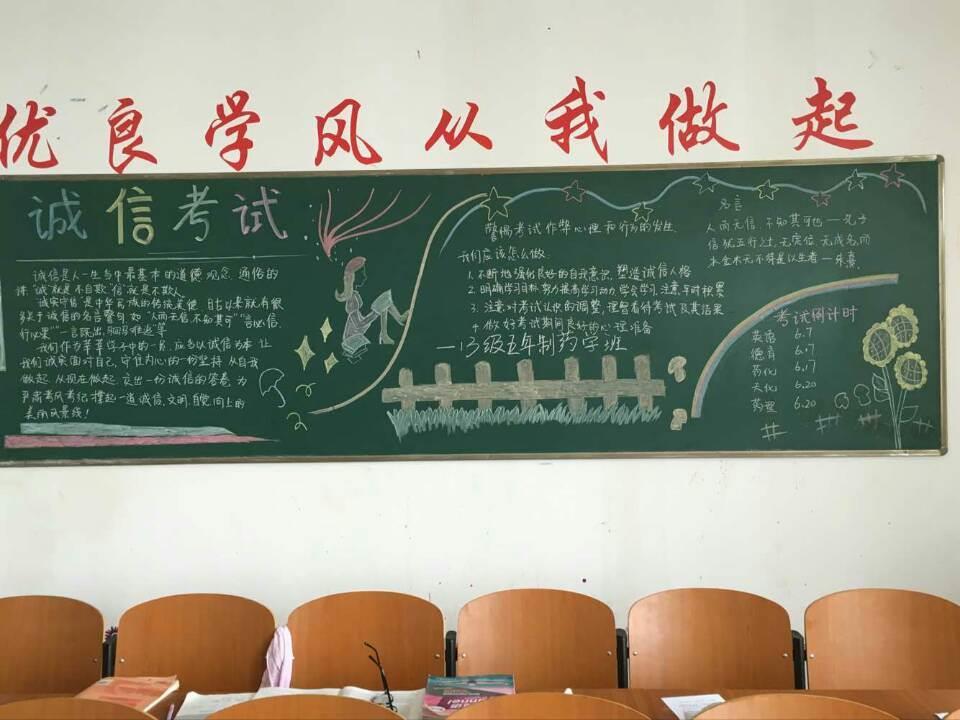 优良学风从我做起
诚信考试
诚信是人一生当中最基本的道德观念.通俗的
讲"诚"就是不自欺"信"就是不欺人
诚实守信是中华民族的传统美德,自古以来就有很
多关于诚信的名言警句如"人而无信不知其可""言必信,
行必果""一言既出,驷马难追等
我们作为莘莘学子中的一员,应当以诚信为本 让
我们诚实面对自己,守住内心的一份坚持 从自我
做起 从现在做起,交出一份诚信的答卷 为
严肃考风考纪,撑起一道诚信,文明,自觉,向上的
美丽风景线!
警惕考试作弊心理和行为的发生
我们应该怎么做
1.不断地强化良好的自我意识,塑造诚信人格
2.明确学习目标,努力提高学习动力,学会学习,注意平时积累
3.注意对考试认识的调整,理智看待考试及其结果
4.做好考试期间良好的心理准备
—13级五年制药学班
名言
人而无信 不知其可也——孔子
信犹五行之土,无定位,无成名,而
水金木无不待是以生者—朱熹
考试倒计时
英语 6.7
德育 6.17
药化 6.17
天化 6.20
药理 6.20